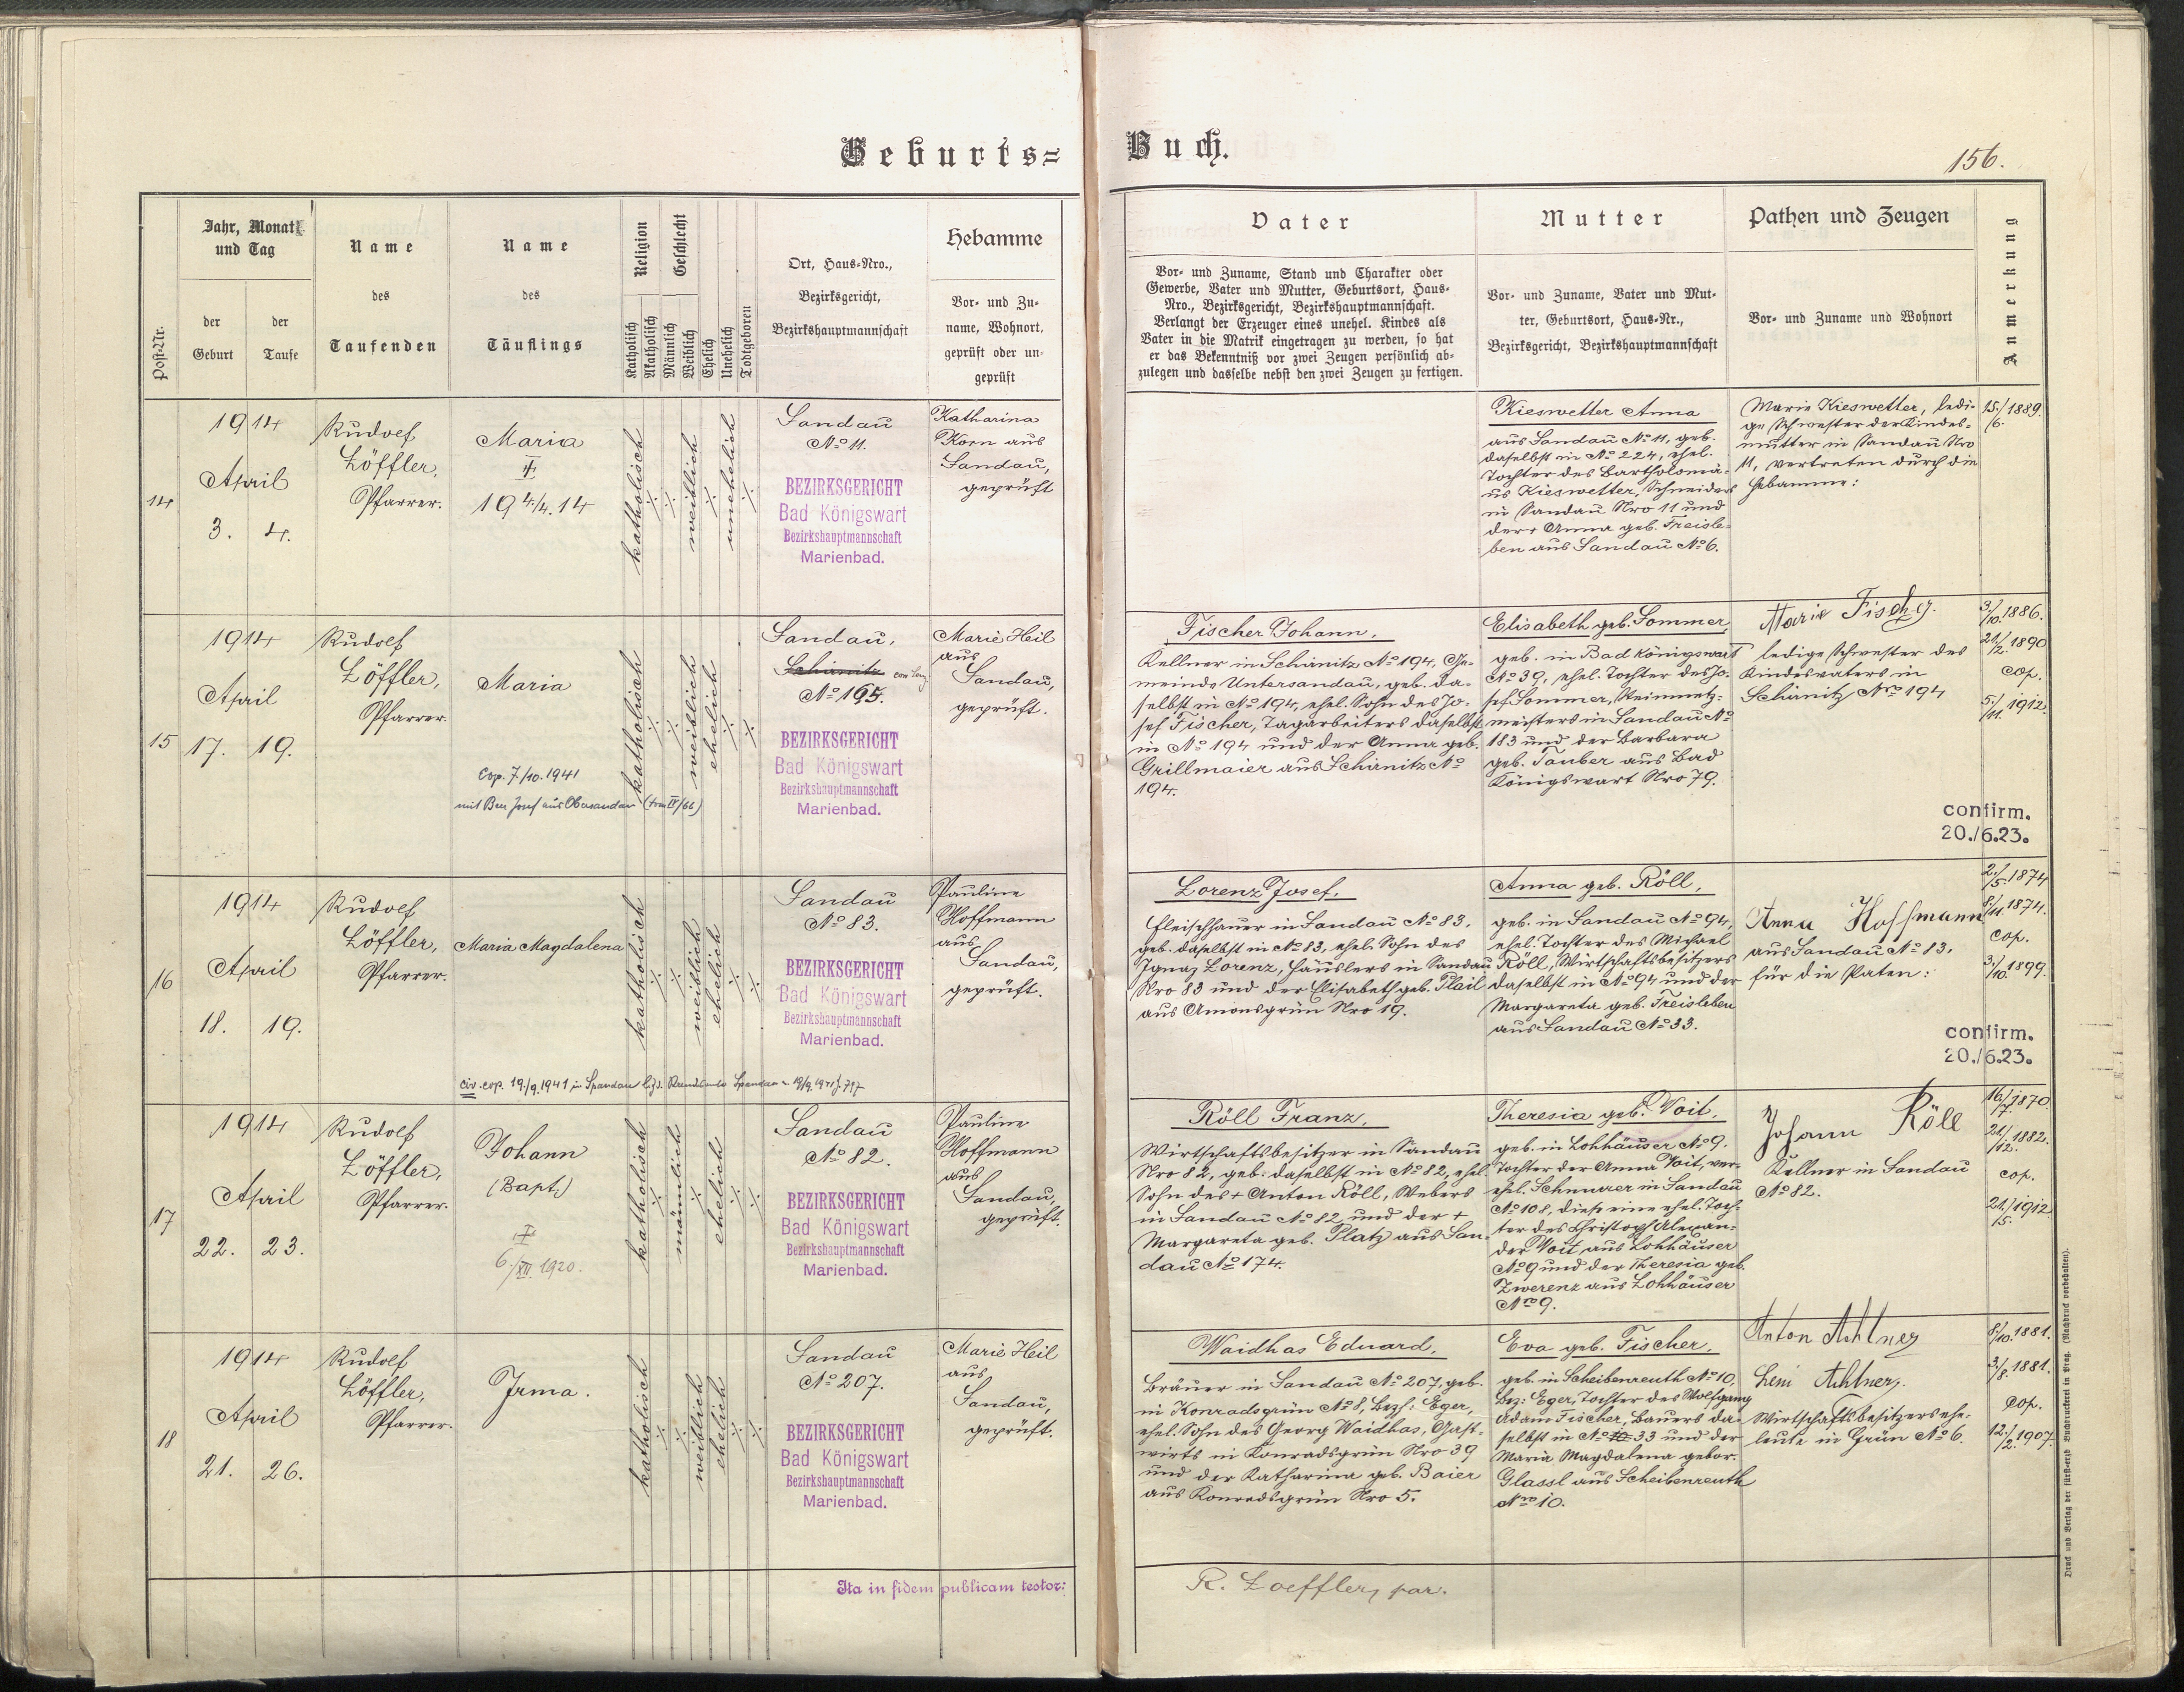 Geburts=
Buch.
156.
Post-Nr.
Jahr, Monat
und Tag
der
Geburt
der
Taufe
Name
des
Taufenden
Name
des
Täuflings
Religion
Katholisch
Akatholisch
Geschlecht
Männlich
Weiblich
Ehelich
Unehelich
Todtgeboren
Ort, Haus-Nro.,
Bezirksgericht,
Bezirkshauptmannschaft
Hebamme
Vor- und Zu-
name, Wohnort,
geprüft oder un-
geprüft
Vater
Vor- und Zuname, Stand und Charakter oder
Gewerbe, Vater und Mutter, Geburtsort, Haus-
Nro., Bezirksgericht, Bezirkshauptmannschaft.
Verlangt der Erzeuger eines unehel. Kindes als
Vater in die Matrik eingetragen zu werden, so hat
er das Bekenntniß vor zwei Zeugen persönlich ab-
zulegen und dasselbe nebst den zwei Zeugen zu fertigen.
Mutter
Vor- und Zuname, Vater und Mut-
ter, Geburtsort, Haus-Nr.,
Bezirksgericht, Bezirkshauptmannschaft
Pathen und Zeugen
Vor- und Zuname und Wohnort
Anmerkung
14
1914
April
3. 4.
Rudolf
Löffler,
Pfarrer.
Maria
19 4/4. 14
katholisch
weiblich
unehelich
Sandau
No 11.
BEZIRKSGERICHT
Bad Königswart
Bezirkshauptmannschaft
Marienbad.
Katharina
Korn aus
Sandau,
geprüft
Kieswetter Anna
aus Sandau No 11, geb.
daselbst in No 224, ehel.
Tochter des Bartholomä-
us Kieswetter, Schneiders
in Sandau Nro 11 und
der + Anna geb. Treisle-
ben aus Sandau No 6.
Marie Kieswetter, ledi-
ge Schwester der Kindes-
mutter in Sandau Nro
11, vertreten durch die
Hebamme:
15./6. 1889.
15
1914
April
17. 19.
Rudolf
Löffler,
Pfarrer.
Maria
Cop. 7/10. 1941
mit Beer Josef aus Obersandau (tom IV/66)
katholisch
weiblich
ehelich
Sandau,
Schirnitz
No 165.
BEZIRKSGERICHT
Bad Königswart
Bezirkshauptmannschaft
Marienbad.
Marie Heil
aus
Sandau,
geprüft.
Fischer Johann,
Kellner in Schirnitz No 194, Ge-
meinde Untersandau, geb. da-
selbst in No 194, ehel. Sohn des Jo-
sef Fischer, Tagarbeiters daselbst
in No 194 und der Anna geb.
Grillmaier aus Schirnitz No
194.
Elisabeth geb. Sommer,
geb. in Bad Königswart
No 39, ehel. Tochter des Jo-
sef Sommer, Steinmetz-
meisters in Sandau No
183 und der Barbara
geb. Tauber aus Bad
Königswart Nro 79.
Marie Fischer.
ledige Schwester des
Kindesvaters in
Schirnitz Nro 194
3./10. 1886.
21./2. 1890
cop.
5./11. 1912.
confirm.
20./6.23.
16
1914
April
18. 19.
Rudolf
Löffler,
Pfarrer.
Maria Magdalena
civ. cop. 19./9. 1941 in Spandau
katholisch
weiblich
ehelich
Sandau
No 83.
BEZIRKSGERICHT
Bad Königswart
Bezirkshauptmannschaft
Marienbad.
Pauline
Hoffmann
aus
Sandau,
geprüft.
Lorenz Josef,
Fleischhauer in Sandau No 83.
geb. daselbst in No 83, ehel. Sohn des
Ignaz Lorenz, Häuslers in Sandau
Nro 83 und der Elisabeth geb. Plail
aus Amonsgrün Nro 19.
Anna geb. Röll,
geb. in Sandau No 94,
ehel. Tochter des Michael
Röll, Wirtschaftsbesitzers
daselbst in No 94 und der
Margareta geb. Treisleben
aus Sandau No 33.
Anna Hoffmann
aus Sandau No 83,
für die Paten:
2./5. 1874
8./11. 1874.
cop.
3./10. 1899.
confirm.
20./6.23.
17
1914
April
22. 23.
Rudolf
Löffler,
Pfarrer.
Johann
(Bapt.)
6./XII. 1920.
katholisch
männlich
ehelich
Sandau
No 82.
BEZIRKSGERICHT
Bad Königswart
Bezirkshauptmannschaft
Marienbad.
Pauline
Hoffmann
aus
Sandau,
geprüft.
Röll Franz,
Wirtschaftsbesitzer in Sandau
Nro 82, geb. daselbst in No 82, ehel.
Sohn des + Anton Röll, Webers
in Sandau No 82 und der +
Margareta geb. Platz aus San-
dau No 174.
Theresia geb. Voit,
geb. in Lohhäuser No 9.
Tochter der Anna Voit, ver-
ehel. Schnurer in Sandau
No 108, diese eine ehel. Toch-
ter des Christoph Alexan-
der Voit aus Lohhäuser
No 9 und der Theresia geb.
Zwerenz aus Lohhäuser
Nro 9.
Johann Röll
Kellner in Sandau
No 82.
16./7. 1870.
21./12. 1882.
cop.
21./5. 1912.
18
1914
April
21. 26.
Rudolf
Löffler,
Pfarrer.
Irma.
katholisch
weiblich
ehelich
Sandau
No 207.
BEZIRKSGERICHT
Bad Königswart
Bezirkshauptmannschaft
Marienbad.
Marie Heil
aus
Sandau,
geprüft.
Waidhas Eduard,
Bräuer in Sandau No 207, geb.
in Konradsgrün No 8, Bezh: Eger,
ehel. Sohn des Georg Waidhas, Gast-
wirts in Konradsgrün Nro 39
und der Katharina geb. Baier
aus Konradsgrün Nro 5.
Eva geb. Fischer,
geb. in Scheibenreuth No 10,
Bez: Eger, Tochter des Wolfgang
Adam Fischer, Bauers da-
selbst in No 10 33 und der
Maria Magdalena gebor.
Glassl aus Scheibenreuth
Nro 10.
Anton Achtner
Leni Achtner,
Wirtschaftsbesitzersehe-
leute in Grün No 6.
8./10. 1881.
3./8. 1881.
cop.
12./2. 1907.
Ita in fidem publicam testor:
R. Loeffler, par.
Druck und Verlag der fürst-erzb Buchdruckerei in Prag. (Nachdruck vorbehalten).